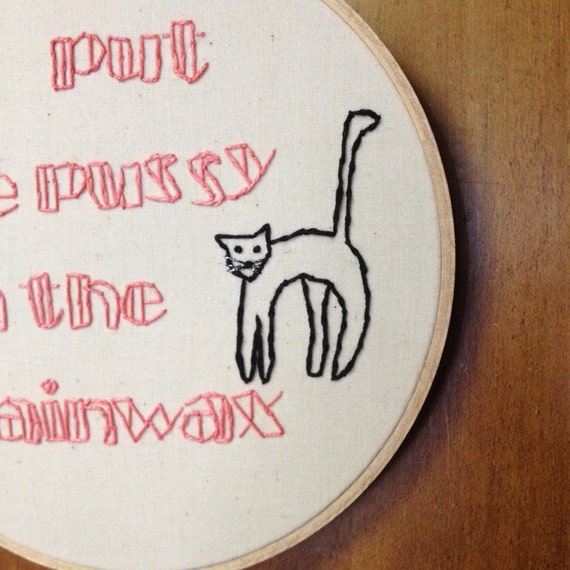 put
e pussy
n the
ainwax